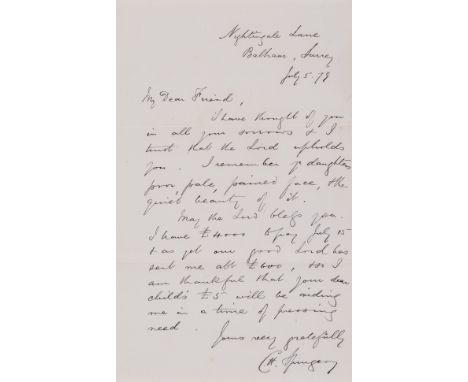 Nightingale Lane
Balham, Surrey
July 5. 79
My Dear Friend,
I have thought of you
in all your sorrows & I
trust that the Lord upholds
you. I remember yr daughters
poor, pale, pained face, & the
quiet beauty of it.
May the Lord bless you.
I have £4000 to pay July 15
& as yet our good Lord has
sent me abt £600, & so I
am thankful that your dear
child's £5 will be aiding
me in a time of pressing
need.
Yours very gratefully
C H. Spurgeon